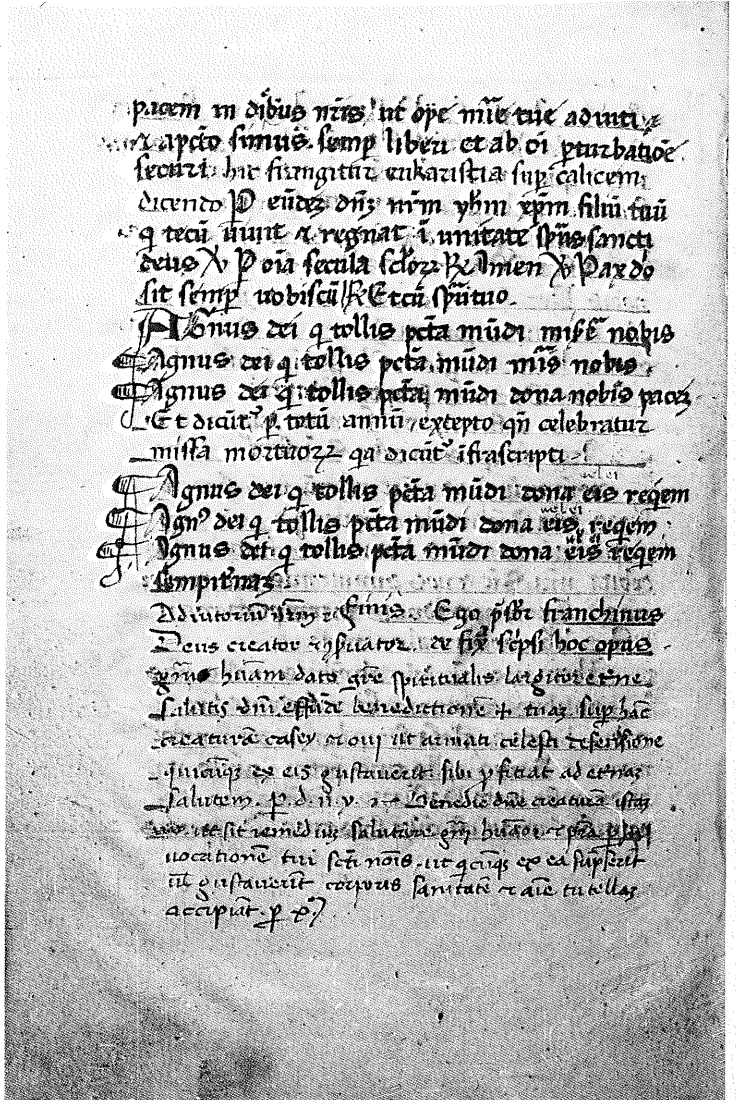 pacem in diebus nr̄is ut ope mīe tue adiuti
& a pctō simus semp liberi et ab oī pturbatiōe
securi. hic frangitur eukaristia sup calicem
dicendo P eundez dn̄z nr̄m yh̄m xp̄m filiū tuū
q tecū uiuit & regnat ī unitate sp̄us sancti
deus ℣ P oīa secula sclorꝝ ℟ Amen ℣ Pax dō
sit semp uobiscū ℟ Et cū sp̄u tuo.
Agnus dei q tollis pctā mūdi misē nobis
Agnus dei q tollis pctā mūdi mīs nobis.
Agnus dei q tollis pctā mūdi dona nobis pacez
Et dicūt p totū annū excepto qn̄ celebratur
missa mortuorꝝ qa dicūt īfrascripti
Agnus dei q tollis pctā mūdi dona eis reqem
uel ei
Agnꝰ dei q tollis pctā mūdi dona eis reqem
uel ei
Agnus dei q tollis pctā mūdi dona eis reqem
uel ei
sempitnaz
Adiutoriū nr̄m Finis. Ego psbr franchinus
Deus creator & 9seruator de scpsi hoc opus
gn̄is humāi dator grē spiritualis largitor etne
salutis dn̄i effūde benedictionē ✝ tuaz sup hāc
creaturā casey & oui ut armati celesti defensione
quicūqz ex eis gustauerīt sibi pficiat ad etnaz
salutem. P. d. n. y. Benedic dn̄e creaturā istaz
ut sit remediuz salutare gn̄i humāo & psta p
uocationē tui scti nōis. ut qcūqz ex ea supserit
ul gustauerit corporis sanitatē & aīe tutellaz
accipiāt. p x